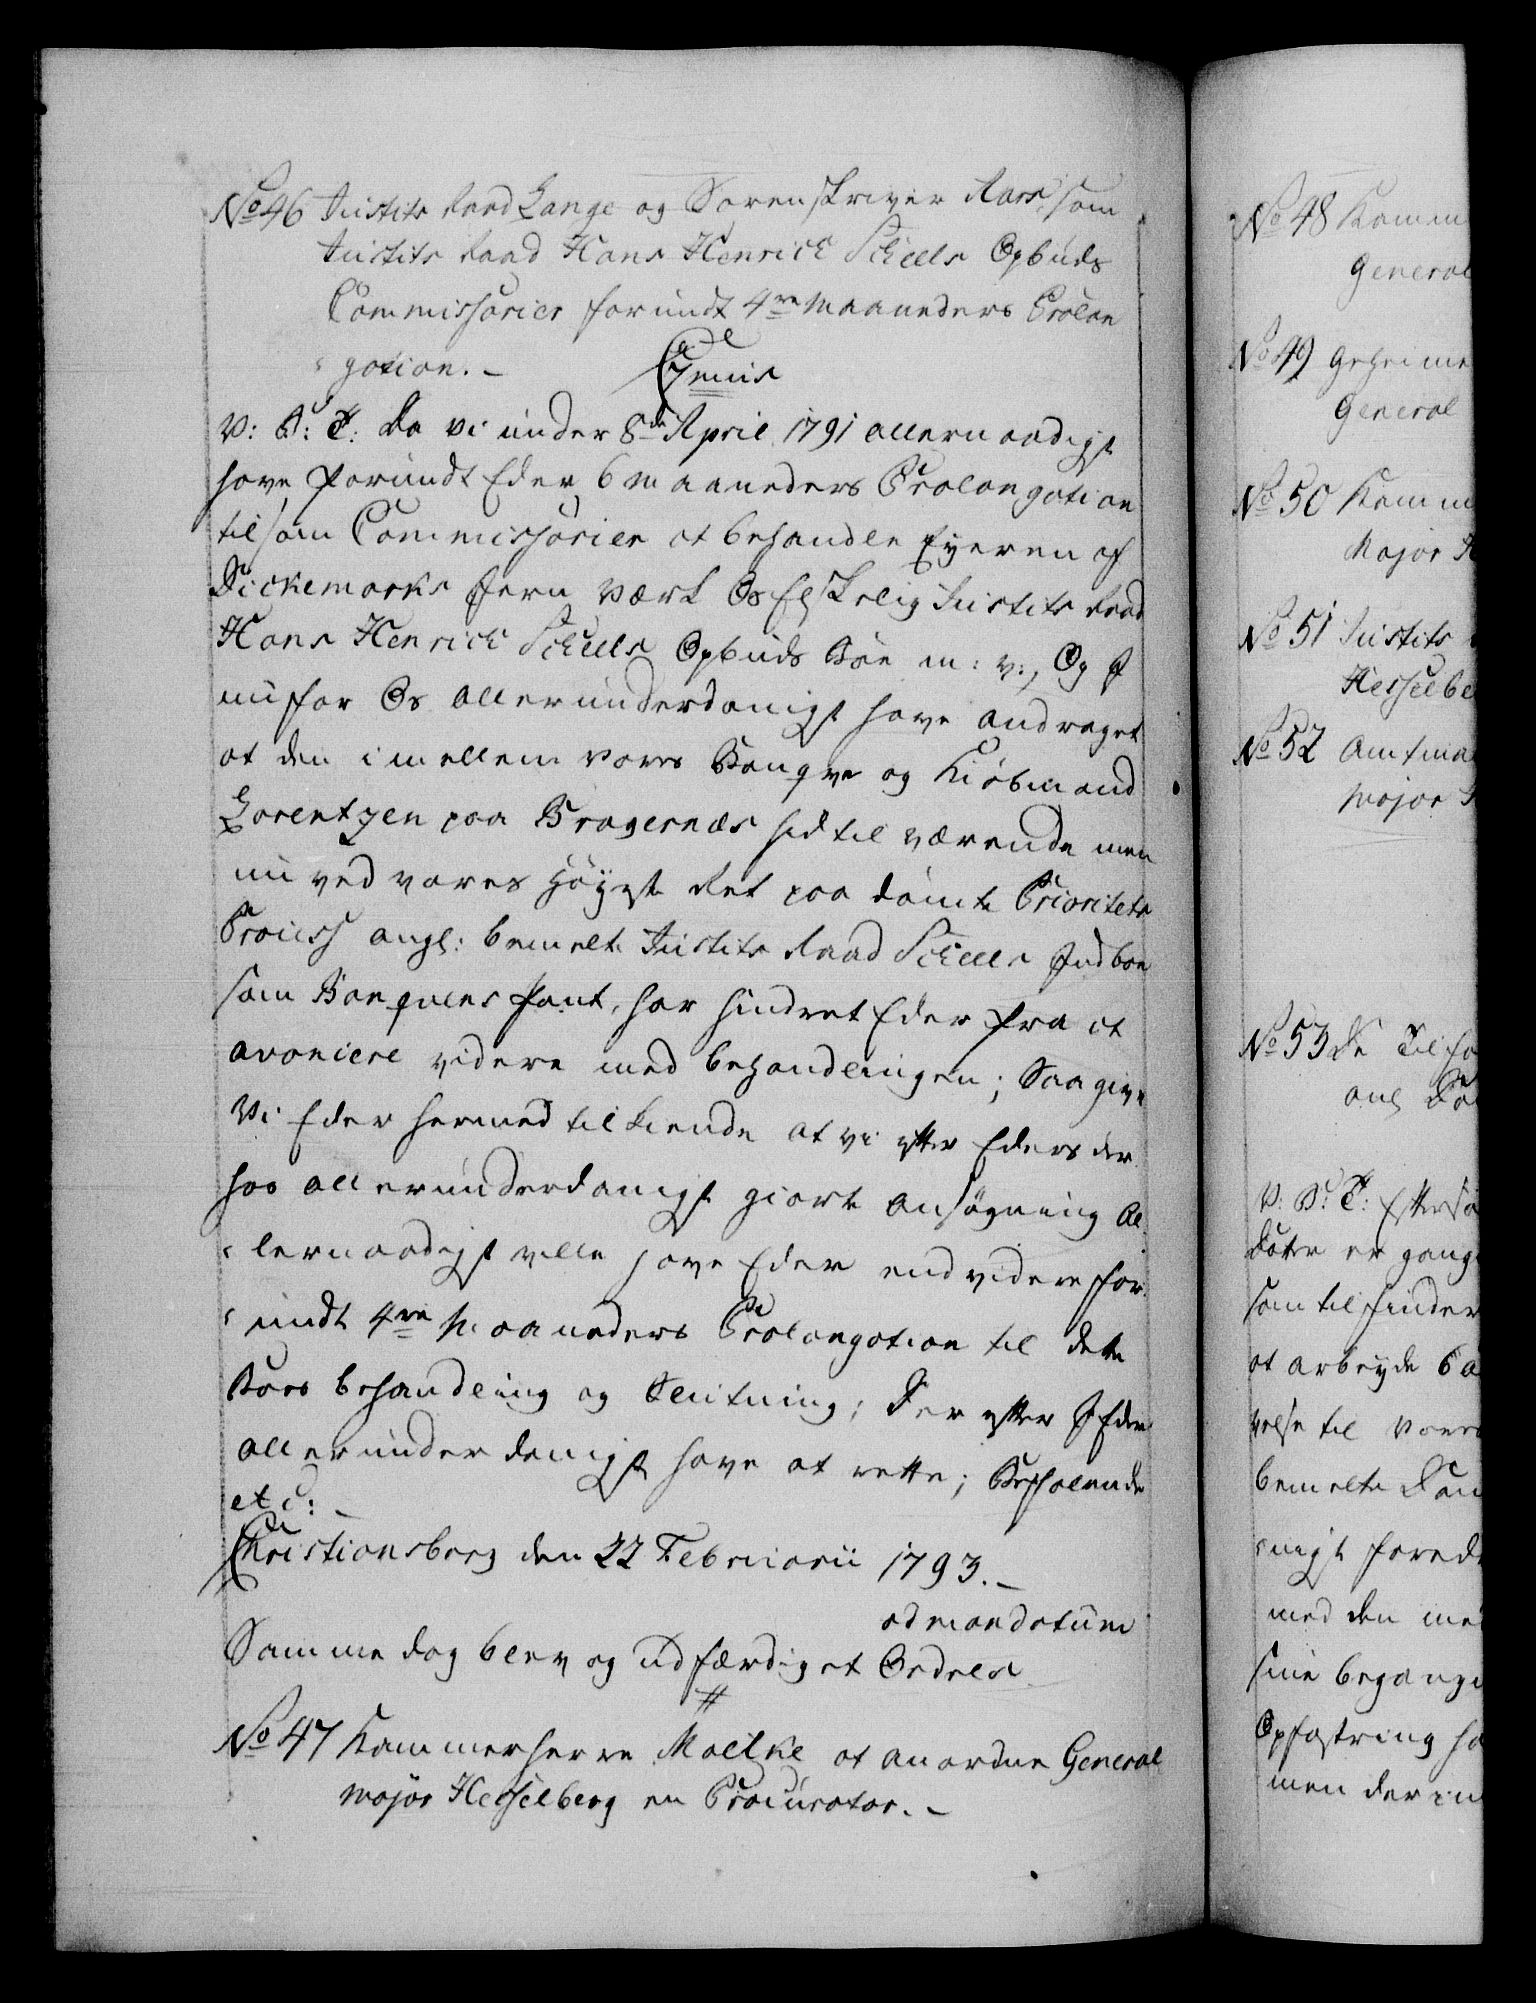 No 46 Justits Raad Lange og Sorenskriver Aars, som
Justits Raad Hans Henrich Scheels Opbuds
Commissarier forundt 4re Maaneders Prolon
gation. –
V: G: T: Da vi under 8de April 1791 allernaadigst
have forundt Eder 6 Maaneders Prolongation
til som Commissarier at behandle Eyeren af
Dickemarks Jern Værk Os Elskelig Justits Raad
Hans Henrich Scheels Opbuds Boe m: v:, Og I
nu for Os allerunderdanigst have andraget
at den imellem Vores Banqve og Kiøbmand
Lorentzen paa Bragernæs hidtil værende men
nu ved vores Høyeste Ret paa dømte Prioritets
Process angl: bemelte Justits Raad Scheels Indboe
som Banquens Pant, har hindret Eder fra at
avancere videre med behandlingen; Saa give
Vi Eder hermed tilkiende at vi efter Eders der
hos allerunderdanigst giorte Ansøgning Al
lernaadigst ville have Eder endvidere for
undt 4re Maaneders Prolongation til dette
Boes behandling og Slutning; Der efter I Eder
allerunderdanigst have at rette; Befalende
etc: –
Christiansborg den 22 Februarii 1793. –
ad mandatum
Samme dag blev og udfærdiget Ordres
#
No 47 Kammerherre Moltke at anordne General
major Hesselberg en Procurator. –
No 48 Kamm
General
No 49 Geheime
General
No 50 Kamm
Major H
No 51 Justits
Hesselbe
No 52 Amtma
Major
No 53 De Tilfo
ang
V: G: T: Eftersom
er gang
som tilfinder
at arbeyde
velse til Vores
bemelte
nigst
med den
sine begange
Opfostring
men der